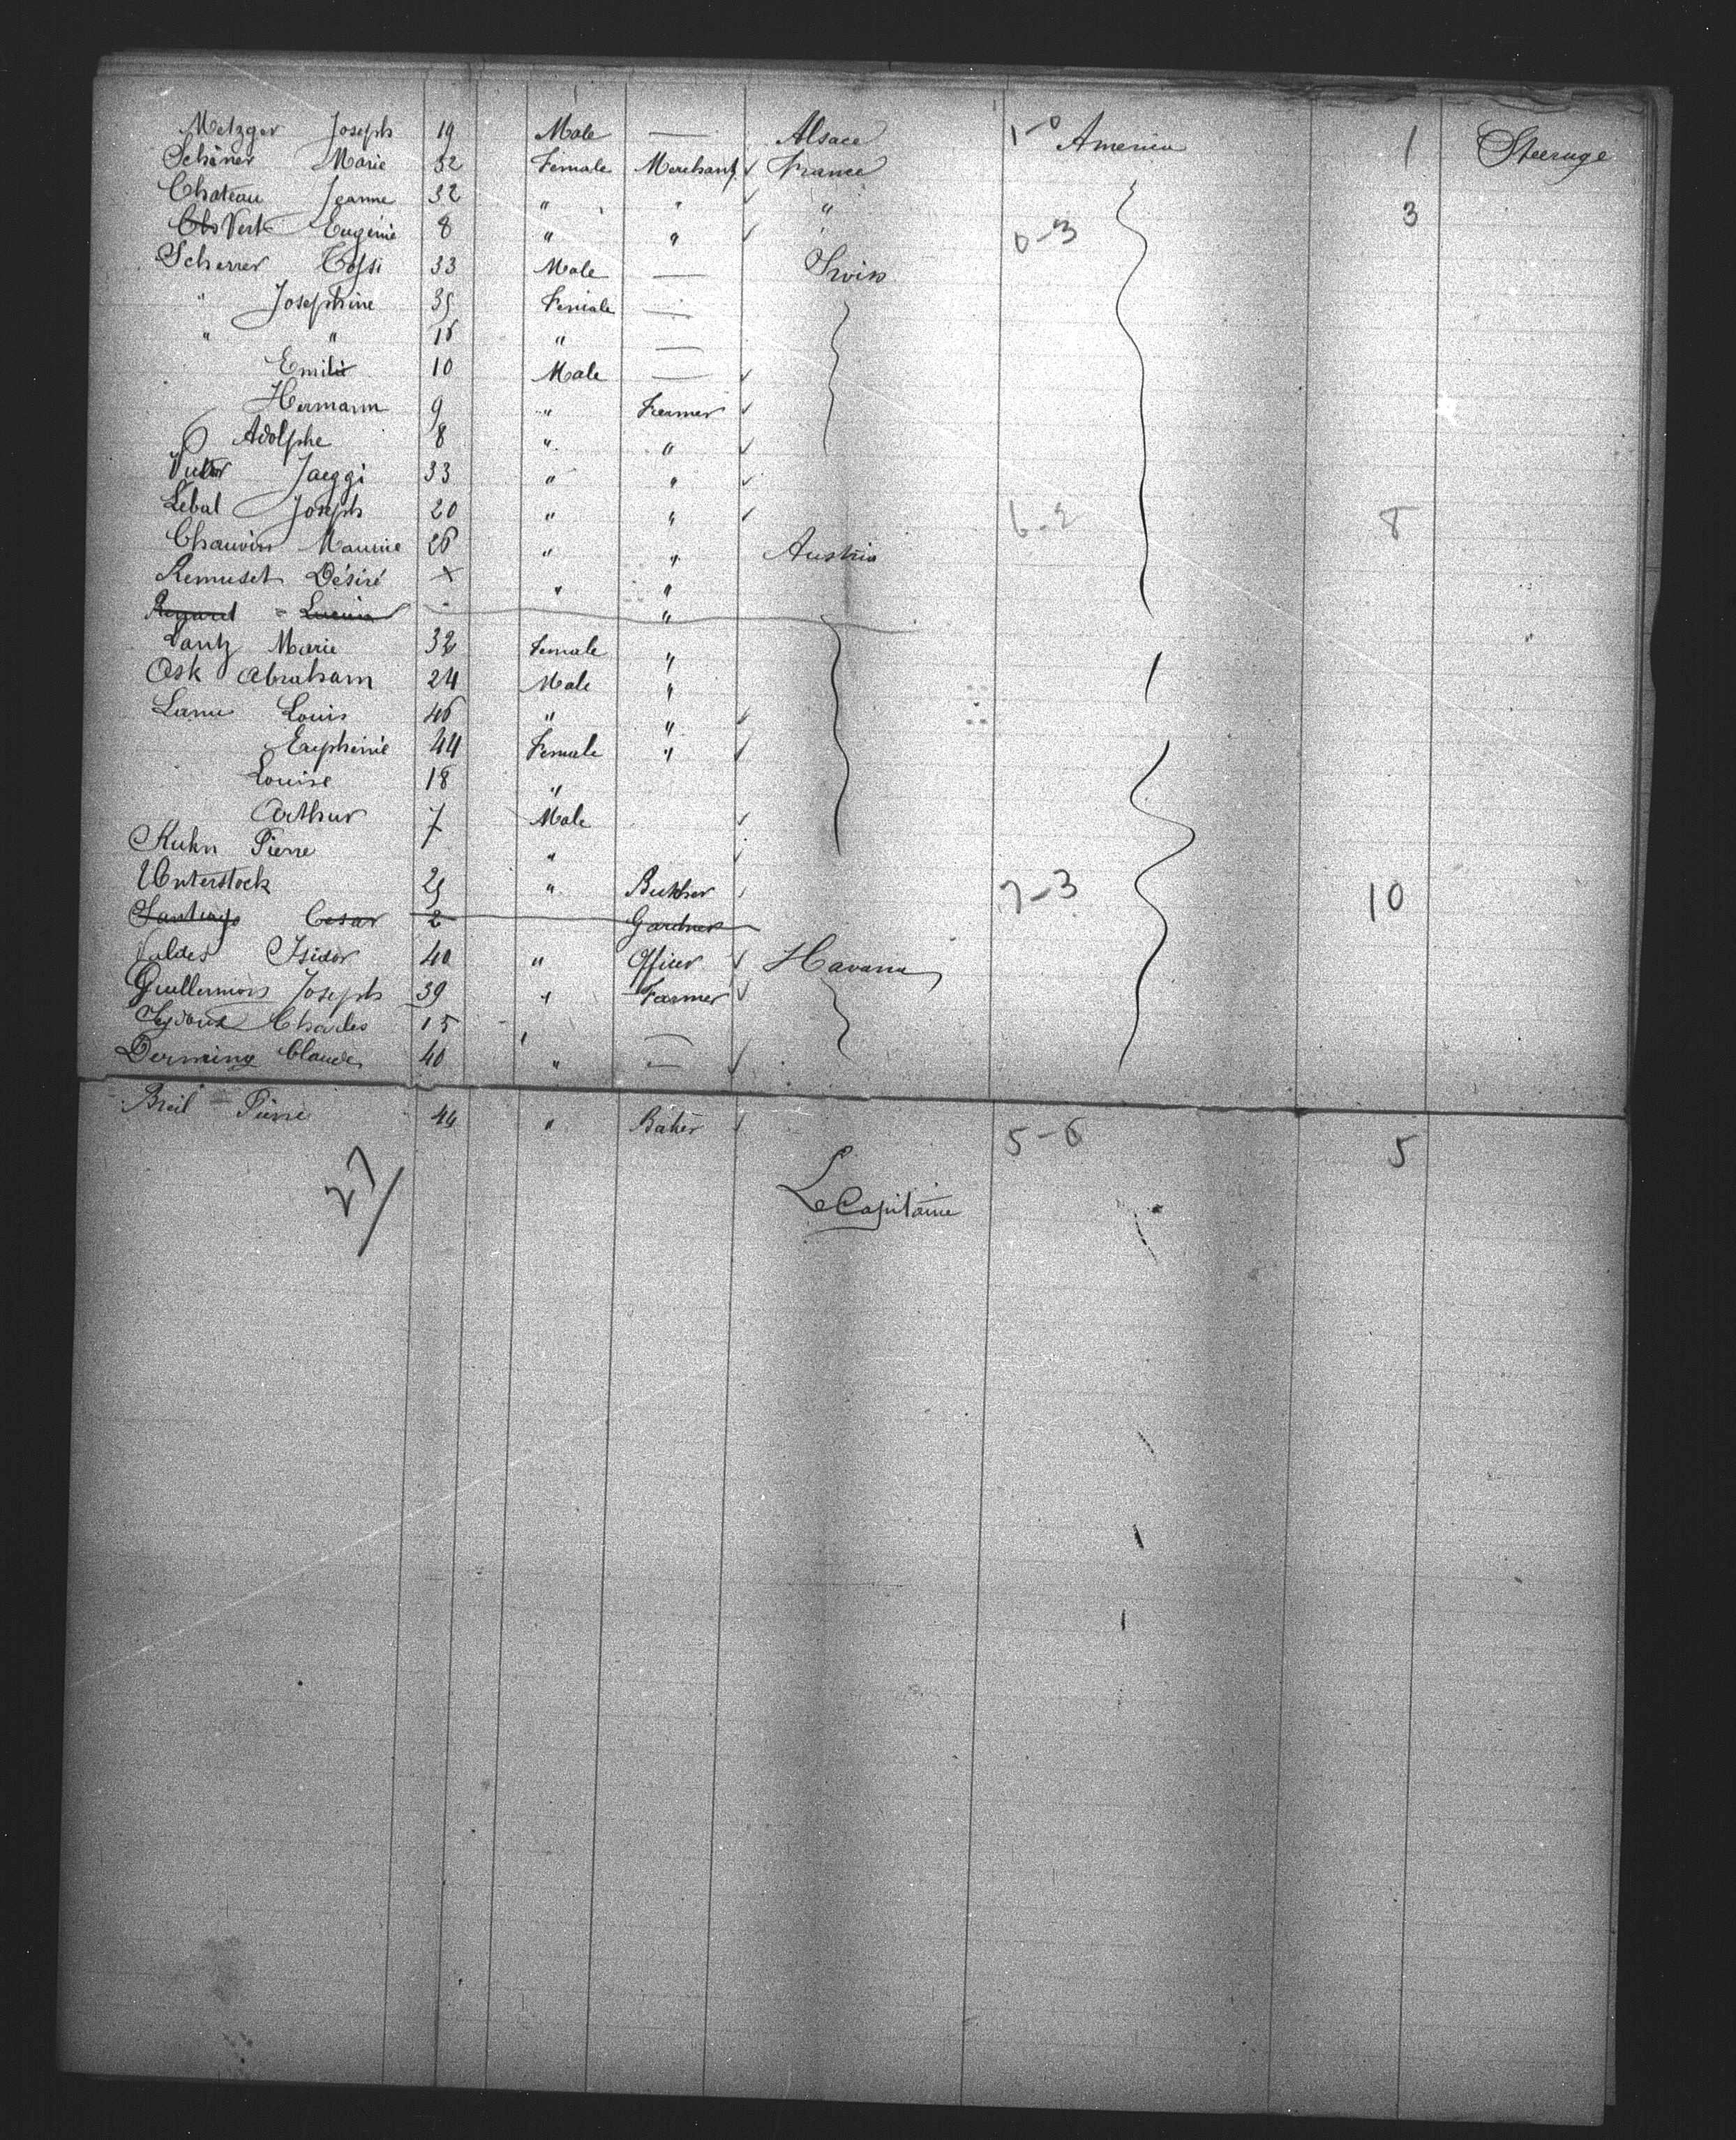 Metzger Joseph 19 Male — Alsace 1-0 America 1 Steerage
Schöner Marie 32 Female Merchant ✓ France
Chateau Jeanne 32 " " ✓ "
Vert Eugénie 8 " " ✓ 0-3 3
Scherrer 33 Male — Swiss
" Josephine 35 Female —
" " 16 " —
Emile 10 Male — ✓
Hermann 9 " Farmer ✓
Adolphe 8 " " ✓
Victor Jaeggi 33 " " ✓
Lebal Joseph 20 " " ✓ 6-2 8
Chauvin Maurice 26 " " Austria
Remuset Désiré x " "
"
Lantz Marie 32 Female "
Ask Abraham 24 Male "
Lanu Louis 46 " " ✓
Euphénie 44 Female " ✓
Louise 18 "
Arthur 7 Male ✓
Kuhn Pierre " ✓
Unterstock 25 " Butcher 7-3 10
Santiago Cesar 2 Gardner
Valdes Isidor 40 " Officer ✓ Havana
Guillermois Joseph 39 " Farmer ✓
Charles 15
Derming Claude 40 " — ✓
Breil Pierre 44 " Baker ✓ 5-6 5
27/
Le Capitaine